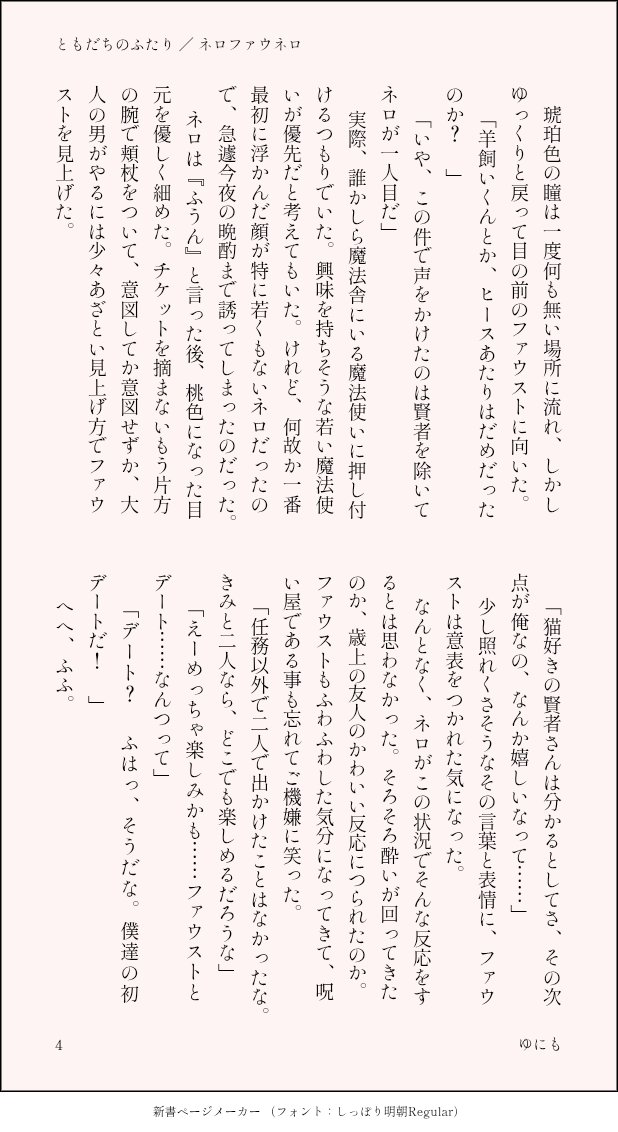 ともだちのふたり ／ ネロファウネロ
琥珀色の瞳は一度何も無い場所に流れ、しかし
ゆっくりと戻って目の前のファウストに向いた。
「羊飼いくんとか、ヒースあたりはだめだった
のか？　」
「いや、この件で声をかけたのは賢者を除いて
ネロが一人目だ」
実際、誰かしら魔法舎にいる魔法使いに押し付
けるつもりでいた。興味を持ちそうな若い魔法使
いが優先だと考えてもいた。けれど、何故か一番
最初に浮かんだ顔が特に若くもないネロだったの
で、急遽今夜の晩酌まで誘ってしまったのだった。
ネロは『ふうん』と言った後、桃色になった目
元を優しく細めた。チケットを摘まないもう片方
の腕で頬杖をついて、意図してか意図せずか、大
人の男がやるには少々あざとい見上げ方でファウ
ストを見上げた。
「猫好きの賢者さんは分かるとしてさ、その次
点が俺なの、なんか嬉しいなって……」
少し照れくさそうなその言葉と表情に、ファウ
ストは意表をつかれた気になった。
なんとなく、ネロがこの状況でそんな反応をす
るとは思わなかった。そろそろ酔いが回ってきた
のか、歳上の友人のかわいい反応につられたのか。
ファウストもふわふわした気分になってきて、呪
い屋である事も忘れてご機嫌に笑った。
「任務以外で二人で出かけたことはなかったな。
きみと二人なら、どこでも楽しめるだろうな」
「えーめっちゃ楽しみかも……ファウストと
デート……なんつって」
「デート？　ふはっ、そうだな。僕達の初
デートだ！　」
へへ、ふふ。
4
ゆにも
新書ページメーカー （フォント：しっぽり明朝Regular）